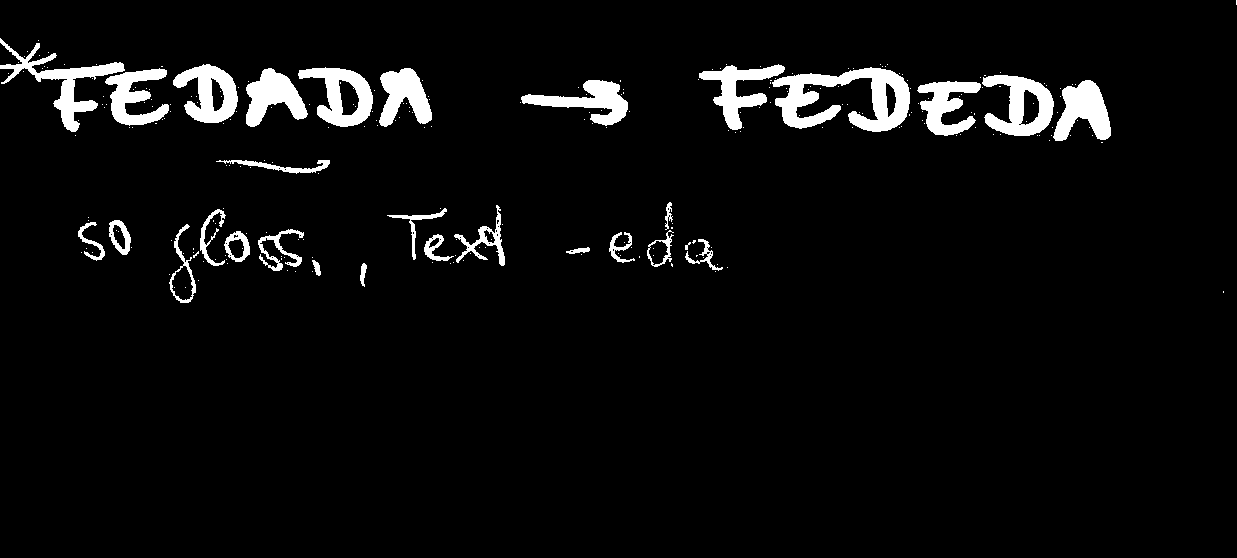 * FEDADA → FEDEDA
so gloss., Text -eda